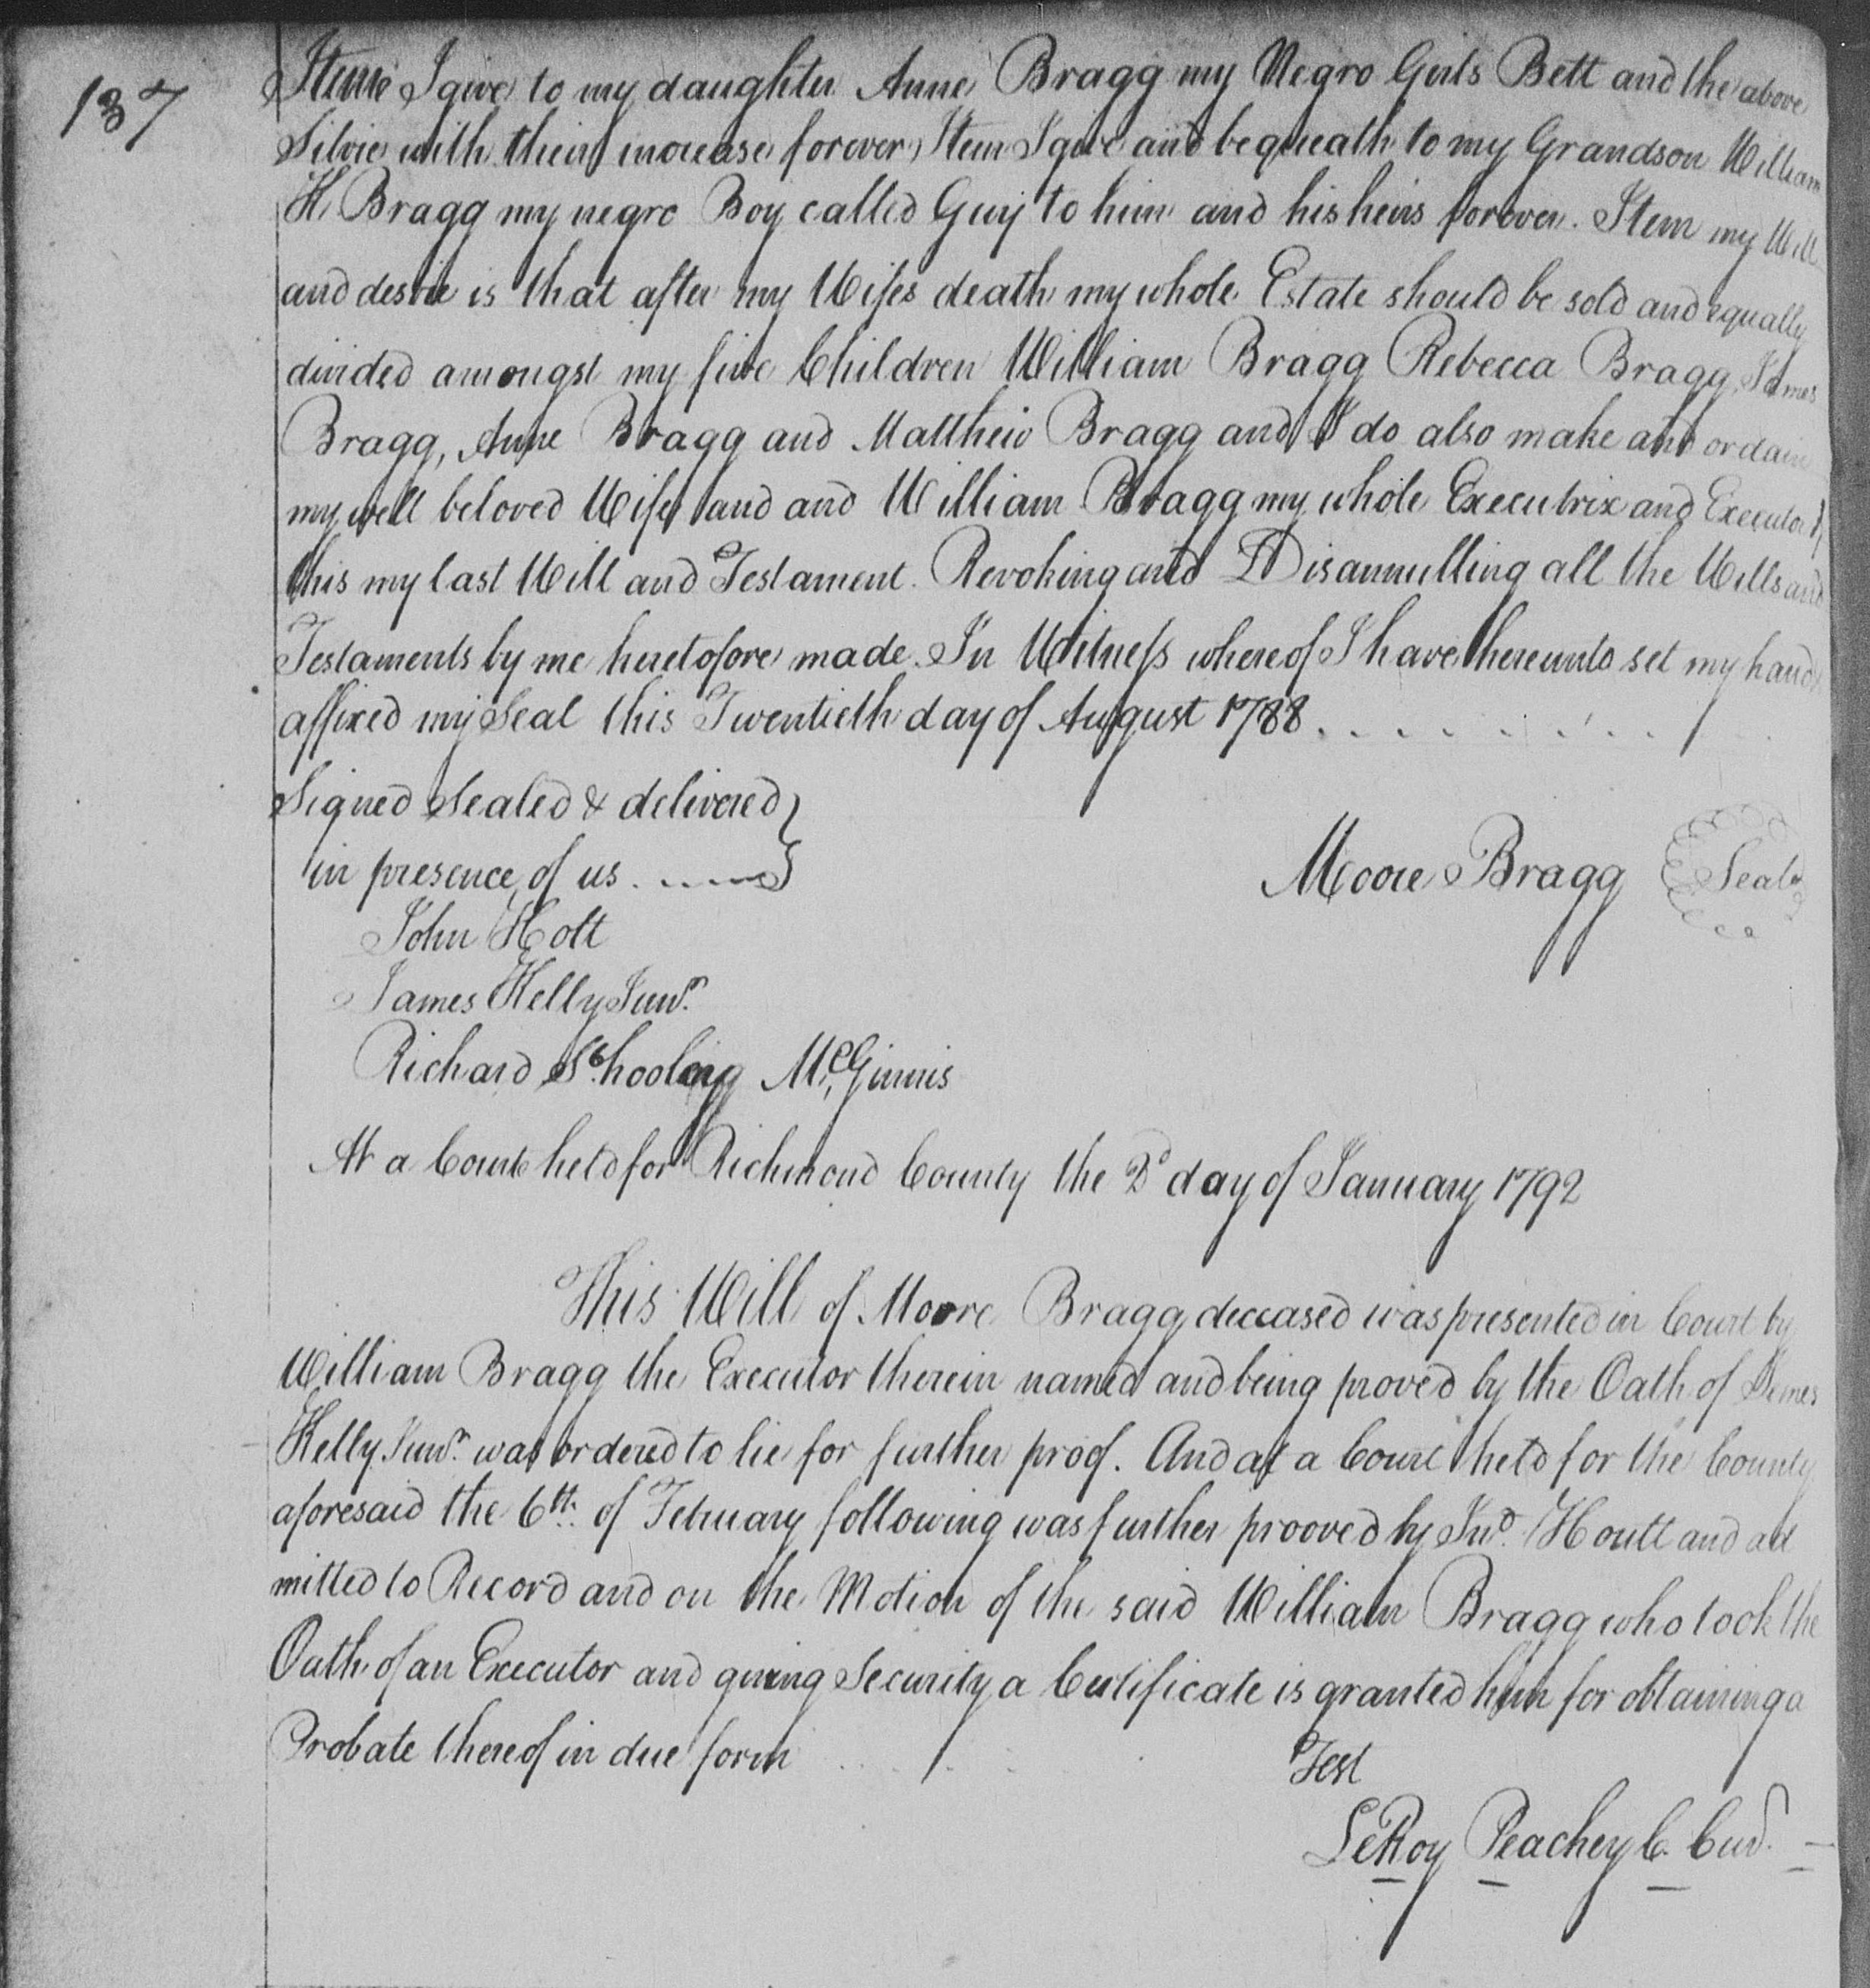 137
Item I give to my daughter Anne Bragg my Negro Girls Bett and the above
Silvie with their increase forever, Item I give and bequeath to my Grandson William
H. Bragg my negro Boy called Guy to him and his heirs forever. Item my Will
and desire is that after my Wifes death my whole Estate should be sold and equally
divided amongst my five Children William Bragg Rebecca Bragg, James
Bragg, Anne Bragg and Matthew Bragg and I do also make and ordain
my well beloved Wife and and William Bragg my whole Executrix and Executor of
this my last Will and Testament. Revoking and Disannulling all the Wills and
Testaments by me heretofore made. In Witness whereof I have hereunto set my hand &
affixed my Seal this Twentieth day of August 1788.
Signed Sealed & delivered }
in presence of us . . . . }
Moore Bragg Seal
John Holt
James Kelly Junr.
Richard Schooling McGinnis
At a Court held for Richmond County the 2d day of January 1792
This Will of Moore Bragg deceased was presented in Court by
William Bragg the Executor therein named and being proved by the Oath of James
Kelly Junr. was ordered to lie for further proof. And at a Court held for the County
aforesaid the 6th. of February following was further prooved by Jno. Hoult and ad
mitted to Record and on the Motion of the said William Bragg who took the
Oath of an Executor and giving Security a Certificate is granted him for obtaining a
Probate thereof in due form
Test
LeRoy Peachey C. Cur.